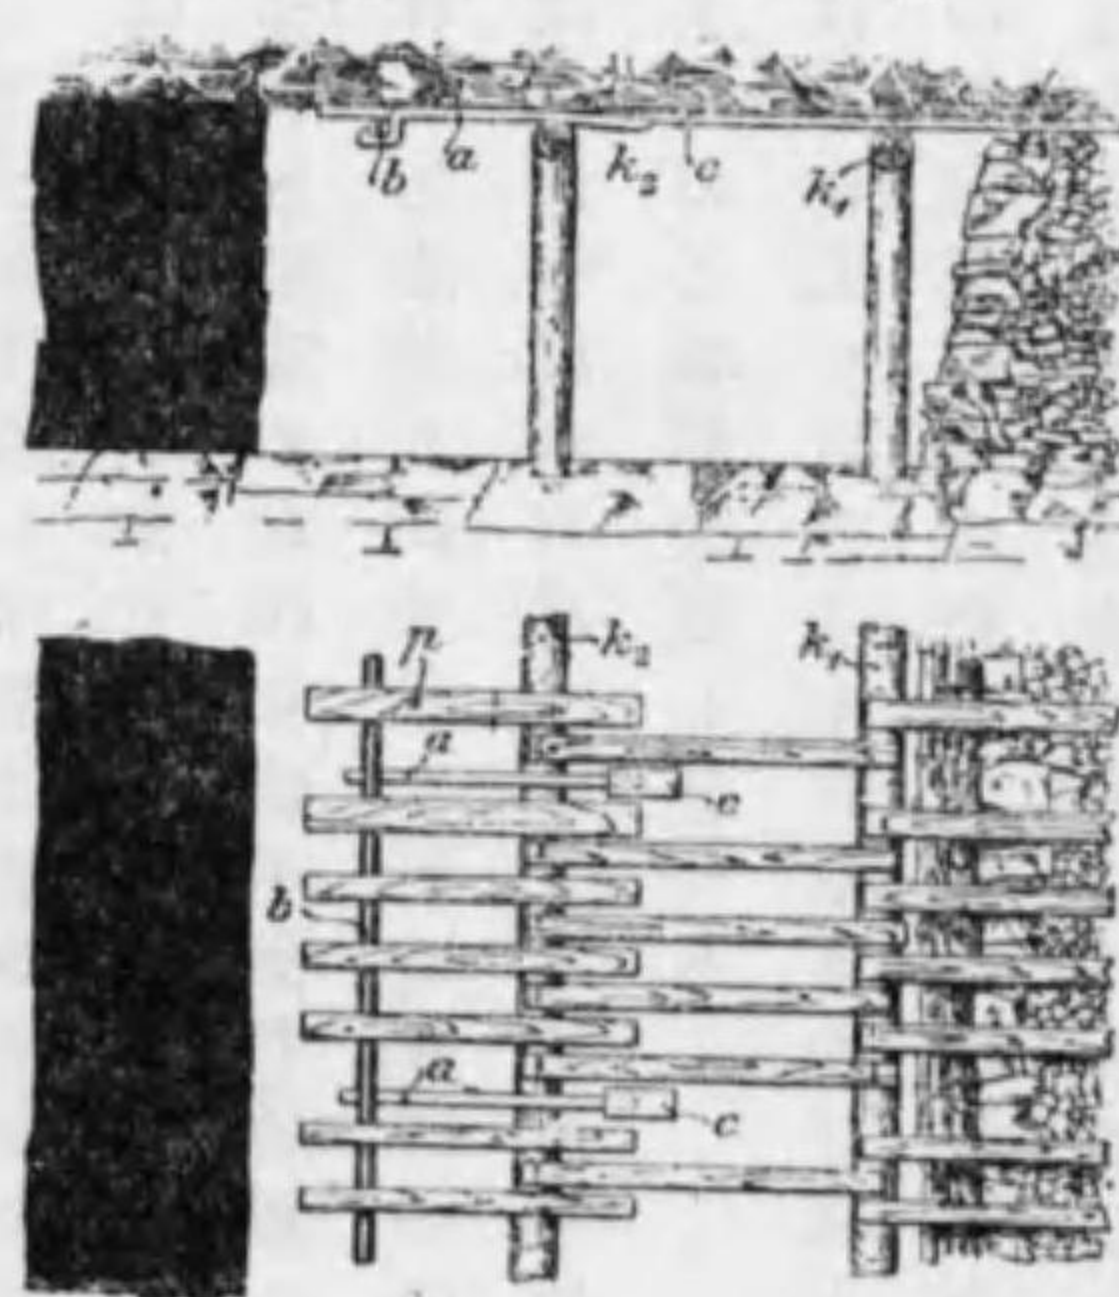 b a k₂ c k₁
p k₂ k₁
a
c
b
a
c